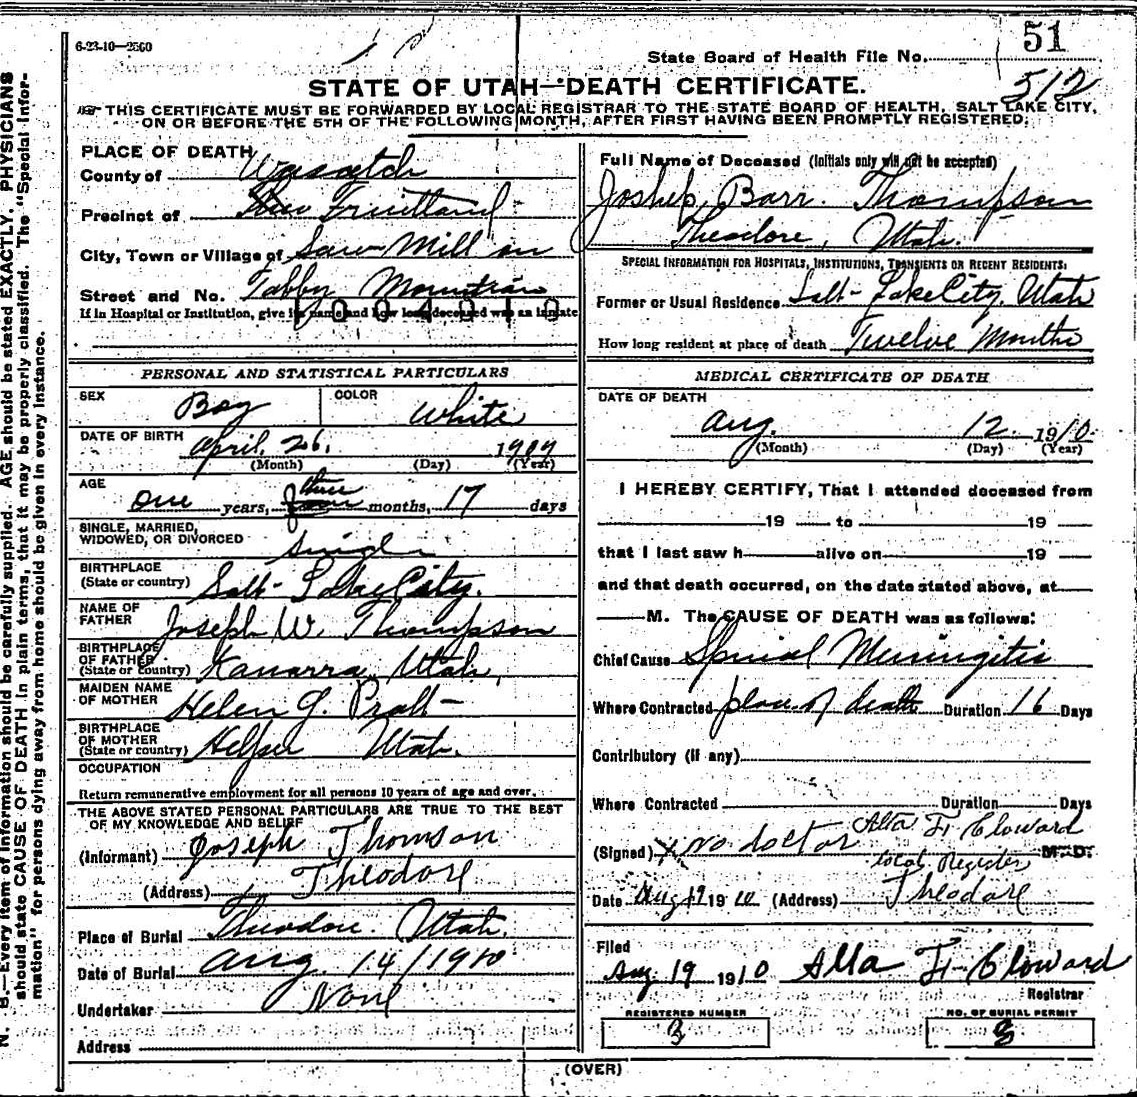 6-23-10—2560
51
State Board of Health File No.
512
STATE OF UTAH—DEATH CERTIFICATE.
THIS CERTIFICATE MUST BE FORWARDED BY LOCAL REGISTRAR TO THE STATE BOARD OF HEALTH, SALT LAKE CITY,
ON OR BEFORE THE 5TH OF THE FOLLOWING MONTH, AFTER FIRST HAVING BEEN PROMPTLY REGISTERED.
PLACE OF DEATH
County of Wasatch
Precinct of Fruitland
City, Town or Village of Saw Mill on
Street and No. Tabby Mountain
If in Hospital or Institution, give its name and how long deceased was an inmate
PERSONAL AND STATISTICAL PARTICULARS
SEX Boy COLOR White
DATE OF BIRTH April 26, 1909
(Month) (Day) (Year)
AGE one years, three months, 17 days
SINGLE, MARRIED,
WIDOWED, OR DIVORCED Single
BIRTHPLACE
(State or country) Salt Lake City.
NAME OF
FATHER Joseph W. Thompson
BIRTHPLACE
OF FATHER
(State or country) Kanarra, Utah,
MAIDEN NAME
OF MOTHER Helen J. Pratt
BIRTHPLACE
OF MOTHER
(State or country) Helper Utah.
OCCUPATION
Return remunerative employment for all persons 10 years of age and over.
THE ABOVE STATED PERSONAL PARTICULARS ARE TRUE TO THE BEST
OF MY KNOWLEDGE AND BELIEF
(Informant) Joseph Thomson
(Address) Theodore
Place of Burial Theodore. Utah.
Date of Burial Aug. 14/1910
Undertaker None
Address
Full Name of Deceased (Initials only will not be accepted)
Joshep Barr. Thompson
Theodore, Utah.
SPECIAL INFORMATION FOR HOSPITALS, INSTITUTIONS, TRANSIENTS OR RECENT RESIDENTS.
Former or Usual Residence Salt Lake City, Utah
How long resident at place of death Twelve Months
MEDICAL CERTIFICATE OF DEATH
DATE OF DEATH
Aug. 12. 1910.
(Month) (Day) (Year)
I HEREBY CERTIFY, That I attended deceased from
19 to 19
that I last saw h alive on 19
and that death occurred, on the date stated above, at
M. The CAUSE OF DEATH was as follows:
Chief Cause Spinial Meningitis
Where Contracted place of death Duration 16 Days
Contributory (if any)
Where Contracted Duration Days
Alta F. Cloward
(Signed) X No doctor M.D.
local Register
Date Aug 19 1910 (Address) Theodore
Filed
Aug 19 1910 Alta F. Cloward
Registrar
REGISTERED NUMBER
3
NO. OF BURIAL PERMIT
3
(OVER)
N. B.—Every item of information should be carefully supplied. AGE should be stated EXACTLY. PHYSICIANS
should state CAUSE OF DEATH in plain terms, that it may be properly classified. The "Special Infor-
mation" for persons dying away from home should be given in every instance.